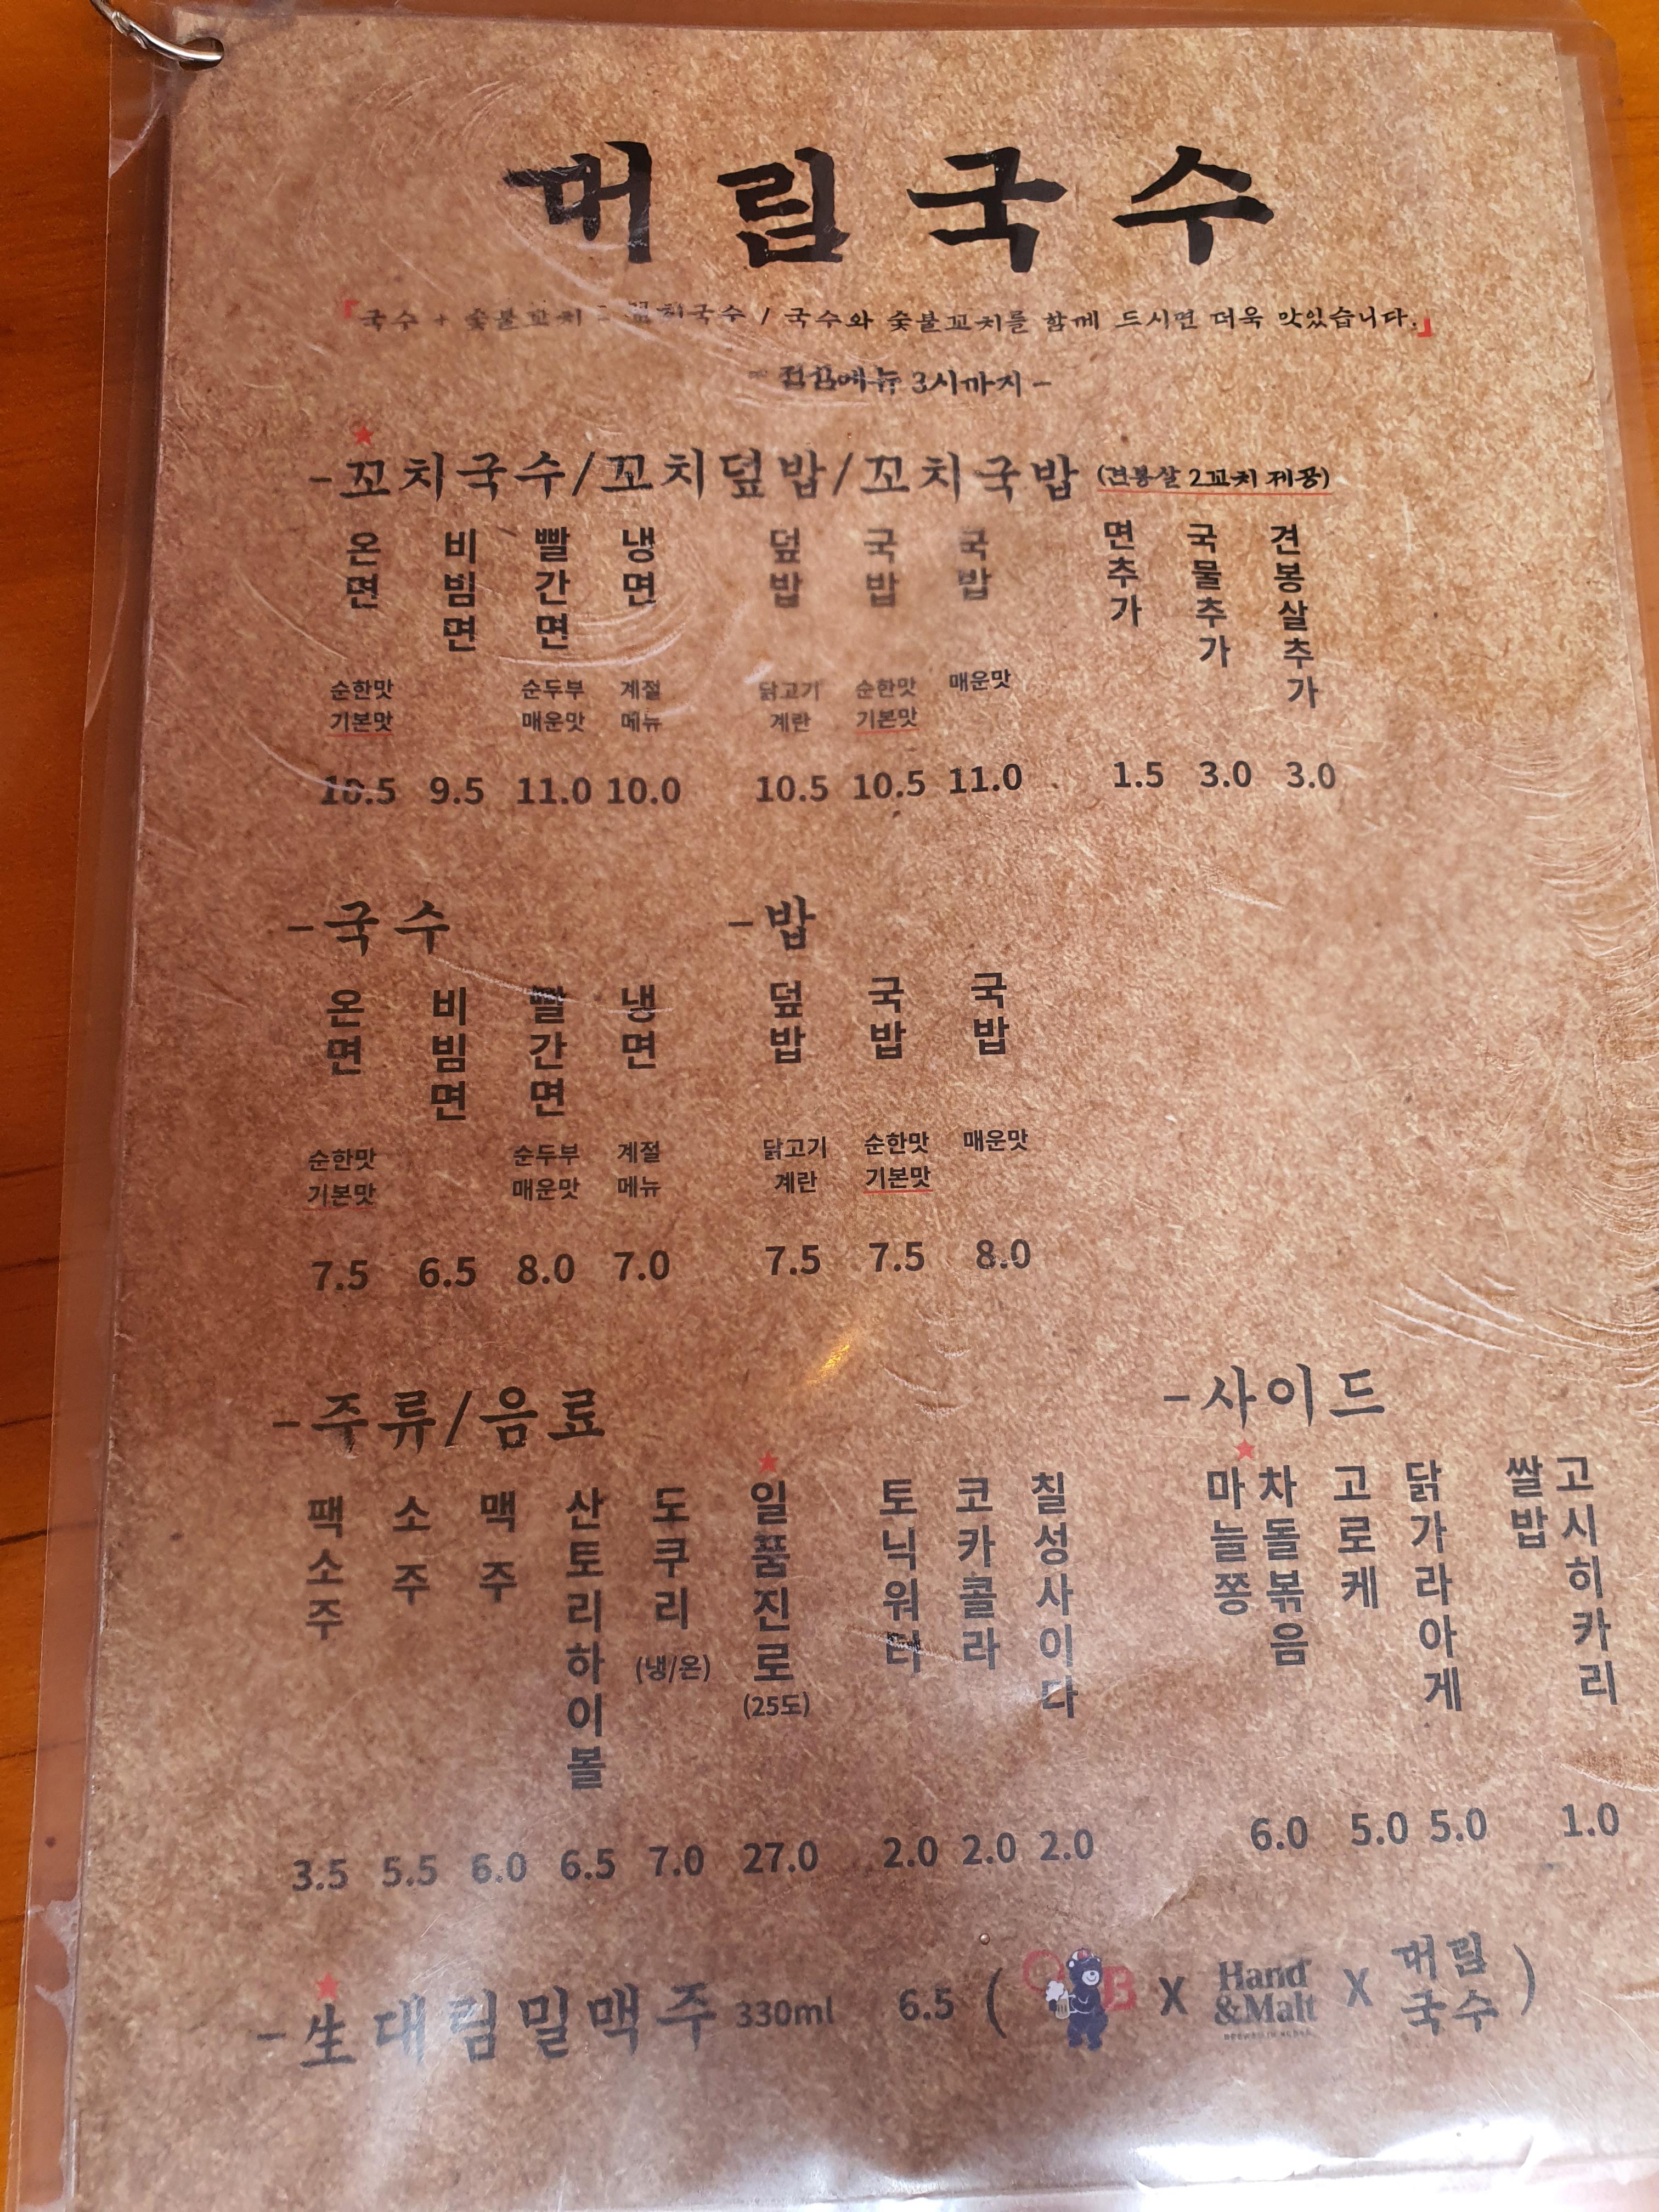 대림국수
「국수 + 숯불꼬치 = 꼬치국수 / 국수와 숯불꼬치를 함께 드시면 더욱 맛있습니다.」
- 점심메뉴 3시까지 -
-꼬치국수/꼬치덮밥/꼬치국밥 (견봉살 2꼬치 제공)
온면 비빔면 빨간면 냉면 덮밥 국밥 국밥 면추가 국물추가 견봉살추가
순한맛 순두부 계절 닭고기 순한맛 매운맛
기본맛 매운맛 메뉴 계란 기본맛
10.5 9.5 11.0 10.0 10.5 10.5 11.0 1.5 3.0 3.0
-국수 -밥
온면 비빔면 빨간면 냉면 덮밥 국밥 국밥
순한맛 순두부 계절 닭고기 순한맛 매운맛
기본맛 매운맛 메뉴 계란 기본맛
7.5 6.5 8.0 7.0 7.5 7.5 8.0
-주류/음료 -사이드
팩소주 소주 맥주 산토리하이볼 도쿠리 일품진로 토닉워터 코카콜라 칠성사이다 마늘쫑 차돌볶음 고로케 닭가라아게 쌀밥 고시히카리
(냉/온) (25도)
3.5 5.5 6.0 6.5 7.0 27.0 2.0 2.0 2.0 6.0 5.0 5.0 1.0
-生대림밀맥주 330ml 6.5 (OB X Hand &Malt X 대림국수)